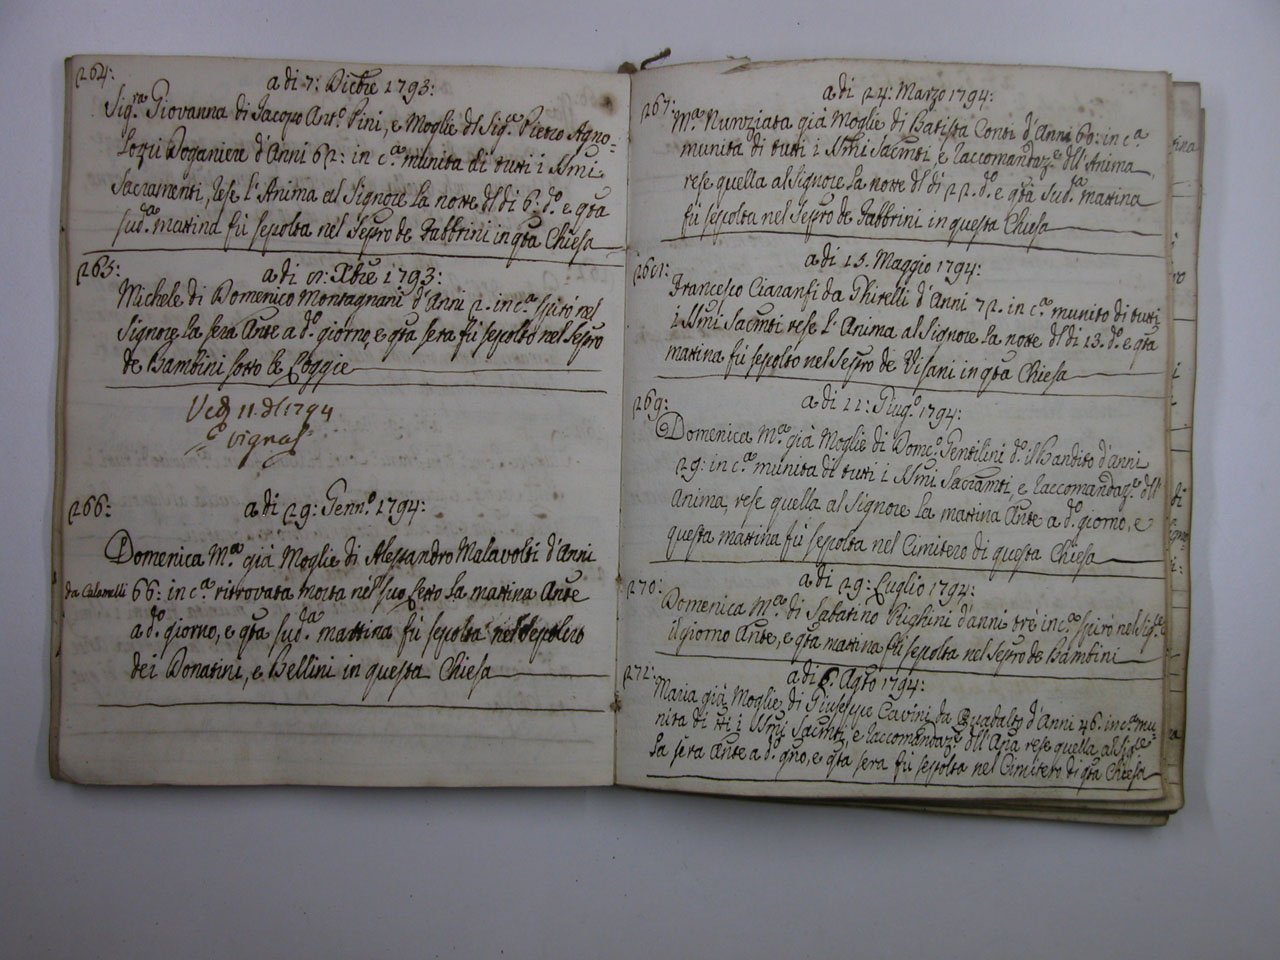 264:
a dì 7: Dicbre 1793:
Sig.ra Giovanna di Jacopo Ant.o Pini, e Moglie dl Sig.e Pietro Agno-
lozzi Doganiere d'Anni 62: in c.a munita di tutti i SSmi
Sacramenti, rese l'Anima al Signore la notte dl dì 6: d.o e qta
sud.a mattina fù sepolta nel Sepro de Fabbrini in qta Chiesa
265:
a dì 8: Xbre 1793:
Michele di Domenico Montagnani d'Anni 2. in c.a spirò nel
Signore la sera Ante a d.o giorno, e qta sera fù sepolto nel Sepro
de Bambini sotto le Loggie
11. 1794
266:
a dì 29: Genn.o 1794:
Domenica M.a già Moglie di Alessandro Malavolti d'Anni
da Calavelli 66: in c.a ritrovata morta nel suo letto la mattina Ante
a d.o giorno, e qta sud.a mattina fù sepolta nel Sepolcro
dei Donatini, e Bellini in questa Chiesa
267:
a dì 24: Marzo 1794:
M.a Nunziata già Moglie di Batista Conti d'Anni 60: in c.a
munita di tutti i SSmi Sacmti, e raccomandaz.e dll'Anima,
rese quella al Signore la notte dl dì 22. d.o e qta sud.a mattina
fù sepolta nel Sepro de Fabbrini in questa Chiesa
268:
a dì 15. Maggio 1794:
Francesco Ciaranfi da Ghirelli d'Anni 72. in c.a munito di tutti
i SSmi Sacmti rese l'Anima al Signore la notte dl dì 13. d.o e qta
mattina fù sepolto nel Sepro de Visani in qta Chiesa
269:
a dì 11: Giug.o 1794:
Domenica M.a già Moglie di Dom.co Gentilini d.o il Bandito d'anni
29: in c.a munita di tutti i SSmi Sacramti, e raccomandaz.e dll'
Anima, rese quella al Signore la mattina Ante a d.o giorno, e
questa mattina fù sepolta nel Cimitero di questa Chiesa
270:
a dì 29: Luglio 1794:
Domenica M.a di Sabatino Righini d'anni tre in c.a spirò nel Sig.e
il giorno Ante, e qta mattina fù sepolta nel Sepro de Bambini
272:
a dì 6. Agto 1794:
Maria già Moglie di Giuseppe Cavini da Guadalto d'Anni 46. in c.a mu-
nita di tti i SSmi Sacmti, e raccomandaz.e dll'Ana rese quella al Sig.e
la sera Ante a d.o gno, e qta sera fù sepolta nel Cimitero di qta Chiesa